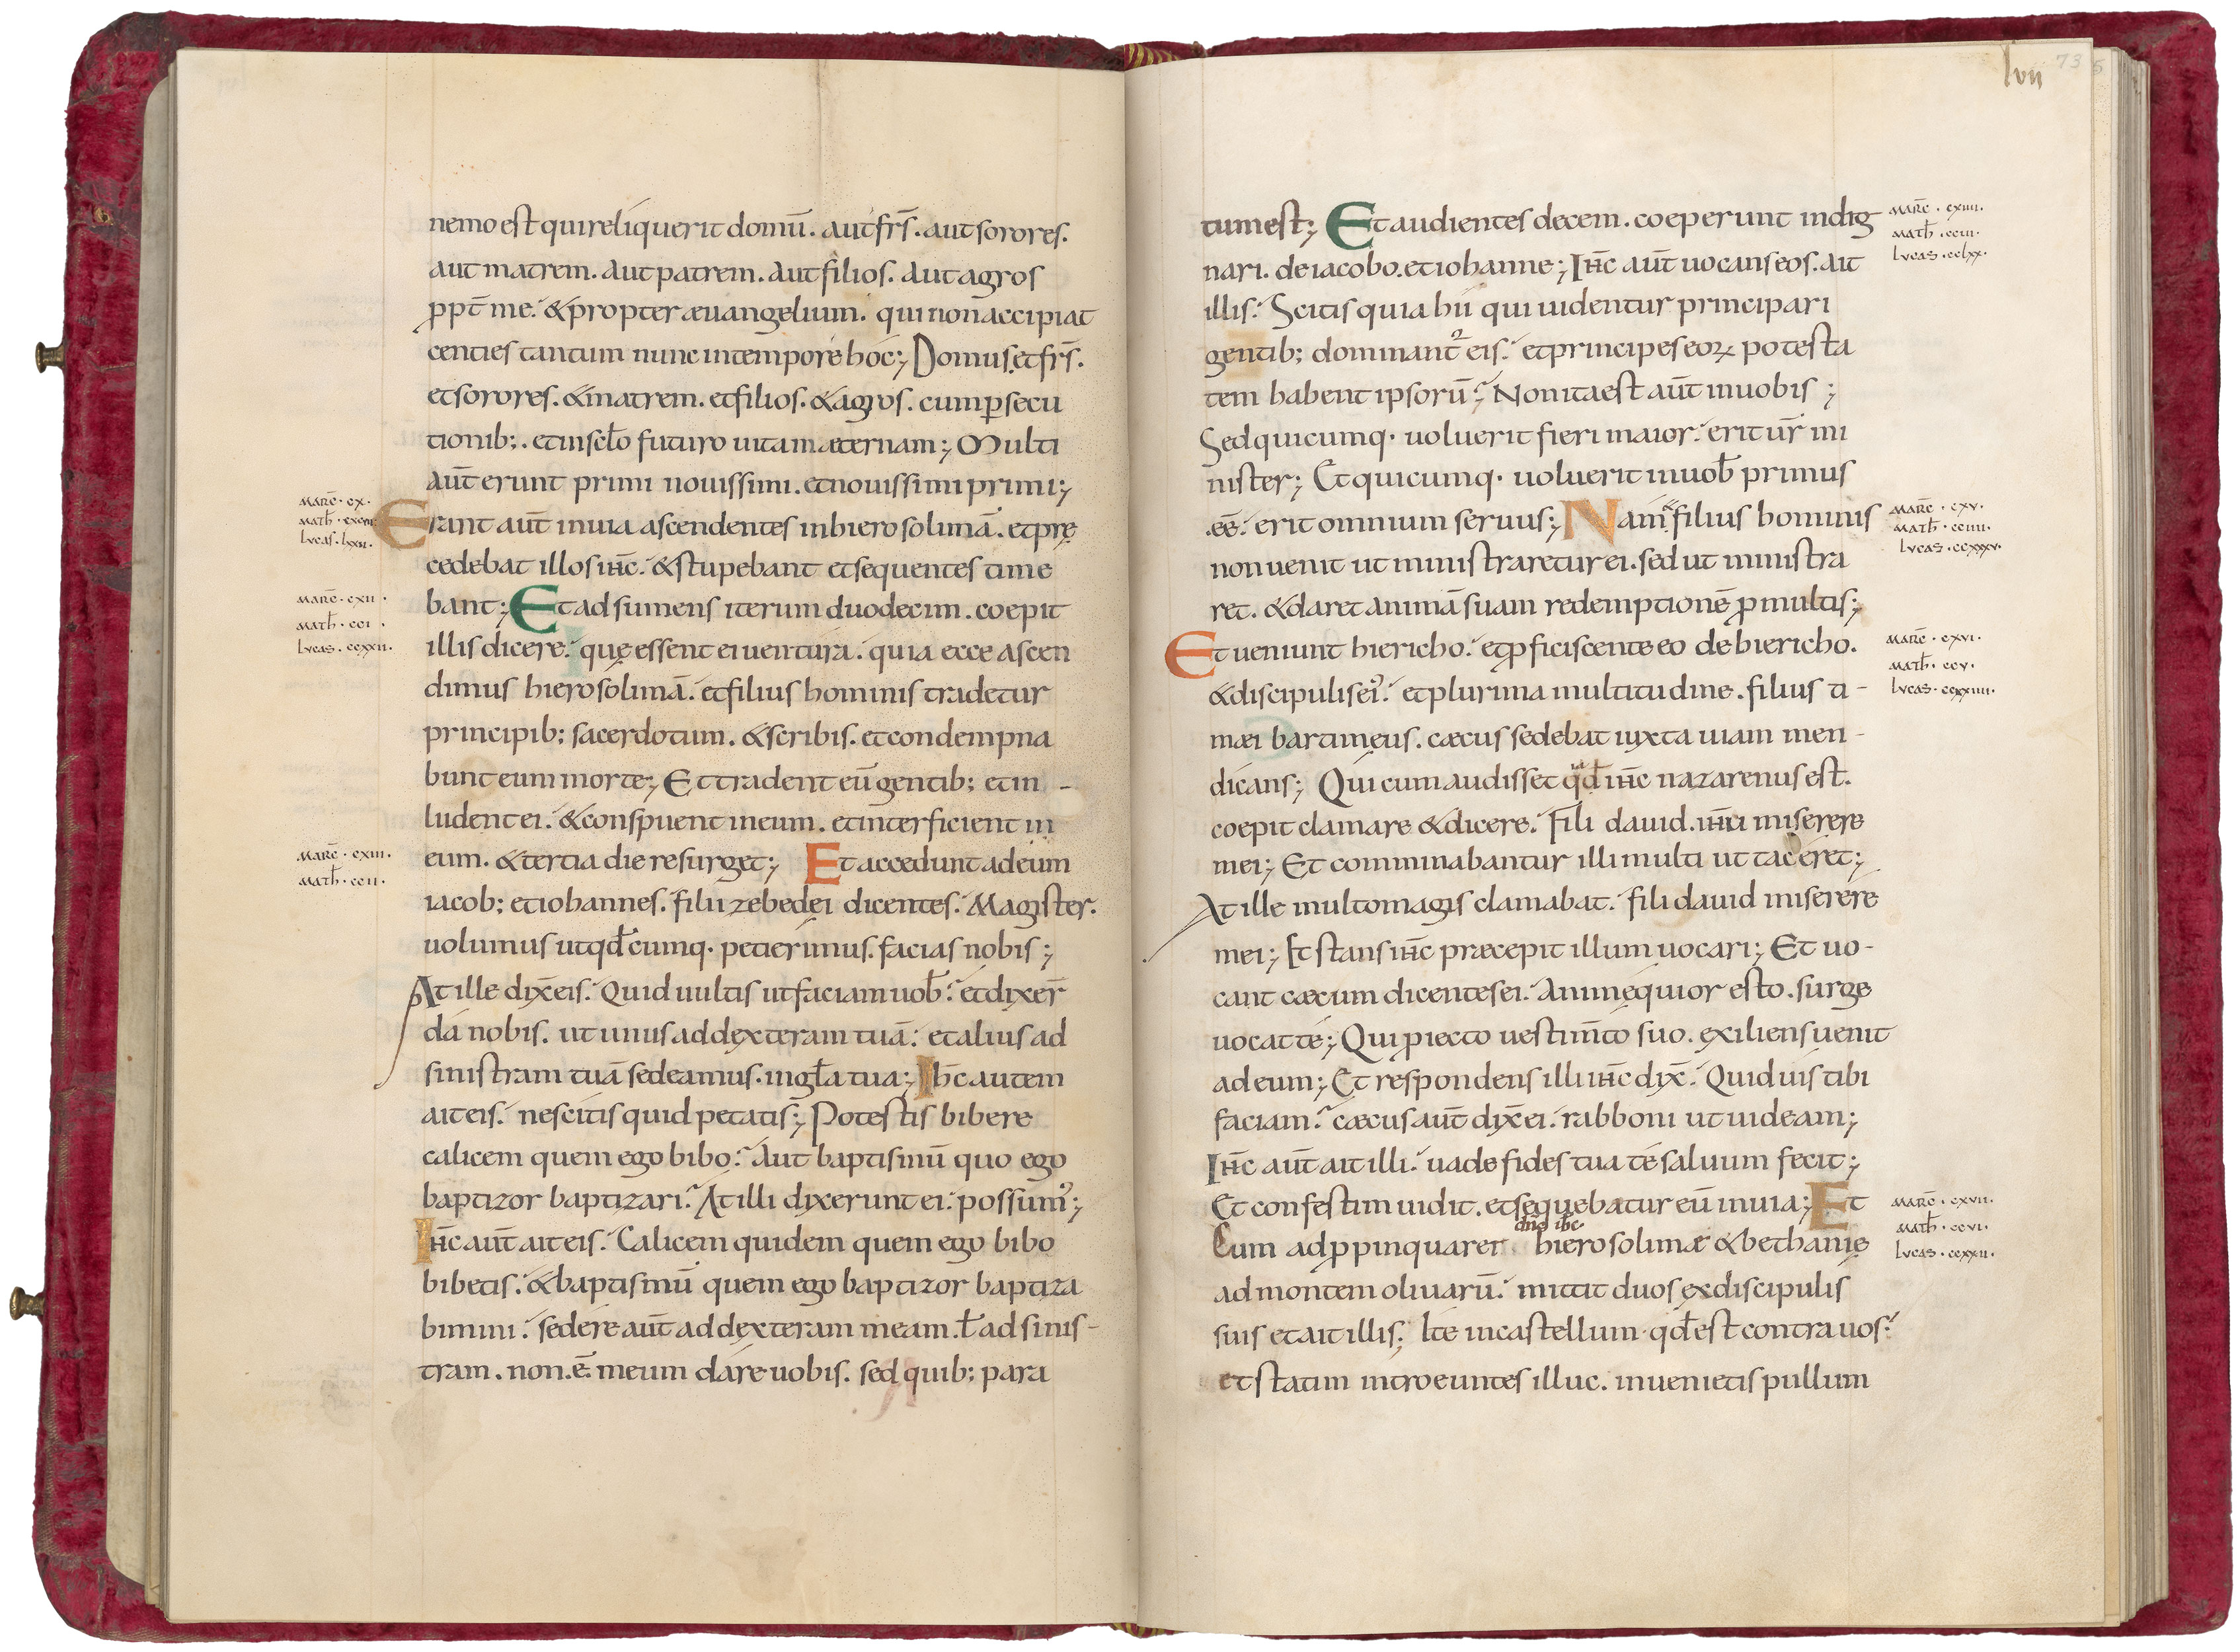 nemo est qui reliquerit domū. aut frs̄. aut sorores.
aut matrem. aut patrem. aut filios. aut agros
ppt̄ me. & propter æuangelium. qui non accipiat
centies tantum nunc in tempore hoc; Domus. et frs̄.
et sorores. & matrem. et filios. & agros. cum ꝑsecu
tionib; . et in sct̄o futuro uitam aeternam; Multi
aut̄ erunt primi nouissimi. et nouissimi primi;
marc̄ · cx ·
math̄ · cxcviii
lucas · lxxii ·
Erant aut̄ in uia ascendentes in hierosolimā. et prę
cedebat illos ihc̄. & stupebant et sequentes time
marc̄ · cxii ·
math̄ · cci ·
lucas · ccxxii ·
bant; Et adsumens iterum duodecim. coepit
illis dicere. quę essent ei uentura. quia ecce ascen
dimus hierosolimā. et filius hominis tradetur
principib; sacerdotum. & scribis. et condempna
bunt eum morte; Et tradent eū gentib; et in -
ludent ei. & conspuent in eum. et interficient in
marc̄ · cxiii ·
math̄ · ccii ·
eum. & tertia die resurget; Et accedunt ad eum
iacob; et iohannes. filii zebedęi dicentes. Magister.
uolumus ut qd̄cumq· petierimus. facias nobis;
At ille dix̄ eis. Quid uultis ut faciam uob̄. et dixer̄
da nobis. ut unus ad dexteram tuā. et alius ad
sinistram tuā sedeamus. in gl̄a tua; Ihc̄ autem
ait eis. nescitis quid petatis; Potestis bibere
calicem quem ego bibo. Aut baptismū quo ego
baptizor baptizari. At illi dixerunt ei. possumꝰ;
Ihc̄ aut̄ ait eis. Calicem quidem quem ego bibo
bibetis. & baptismū quem ego baptizor baptiza
bimini. sedere aut̄ ad dexteram meam. ł ad sinis -
tram. non .ē. meum dare uobis. sed quib; para
lvii 73 5
tum est; Et audientes decem. coeperunt indig
marc̄ · cxiiii ·
math̄ · cciii ·
lucas · cclxx ·
nari. de iacobo. et iohanne; Ihc̄ aut̄ uocans eos. ait
illis. Scitis quia hii qui uidentur principari
gentib; dominant᷑ eis. et principes eoꝝ potesta
tem habent ipsorū. Non ita est aut̄ in uobis;
Sed quicumq· uoluerit fieri maior. erit ur̄ mi
nister; Et quicumq· uoluerit in uob̄ primus
.eē. erit omnium seruus; Nam & filius hominis
marc̄ · cxv ·
math̄ · cciiii ·
lucas · ccxxxv ·
non uenit ut ministraretur ei. sed ut ministra
ret. & daret animā suam redemptionē ꝓ multis;
Et ueniunt hiericho. et ꝓficiscente eo de hiericho.
marc̄ · cxvi ·
math̄ · ccv ·
lucas · ccxxiiii ·
& discipulis eiꝰ. et plurima multitudine. filius ti -
mæi bartimęus. cæcus sedebat iuxta uiam men -
dicans; Qui cum audisset qd̄ ihc̄ nazarenus est.
coepit clamare & dicere. Fili dauid. ihū miserere
mei; Et comminabantur illi multi ut taceret;
At ille multo magis clamabat. fili dauid miserere
mei; Et stans ihc̄ præcepit illum uocari; Et uo -
cant cæcum dicentes ei. Animęquior esto. surge
uocat te; Qui ꝓiecto uestim̄to suo. exiliens uenit
ad eum; Et respondens illi ihc̄ dix̄. Quid uis tibi
faciam. cæcus aut̄ dix̄ ei. rabboni ut uideam;
Ihc̄ aut̄ ait illi. uade fides tua te saluum fecit;
Et confestim uidit. et sequebatur eū in uia; Et
marc̄ · cxvii ·
math̄ · ccvi ·
lucas · ccxxii ·
dn̄s ihc
Cum adꝓpinquaret hierosolimæ & bethanię
ad montem oliuarū. mittit duos ex discipulis
suis et ait illis; Ite in castellum · qd̄ est contra uos.
et statim introeuntes illuc. inuenietis pullum